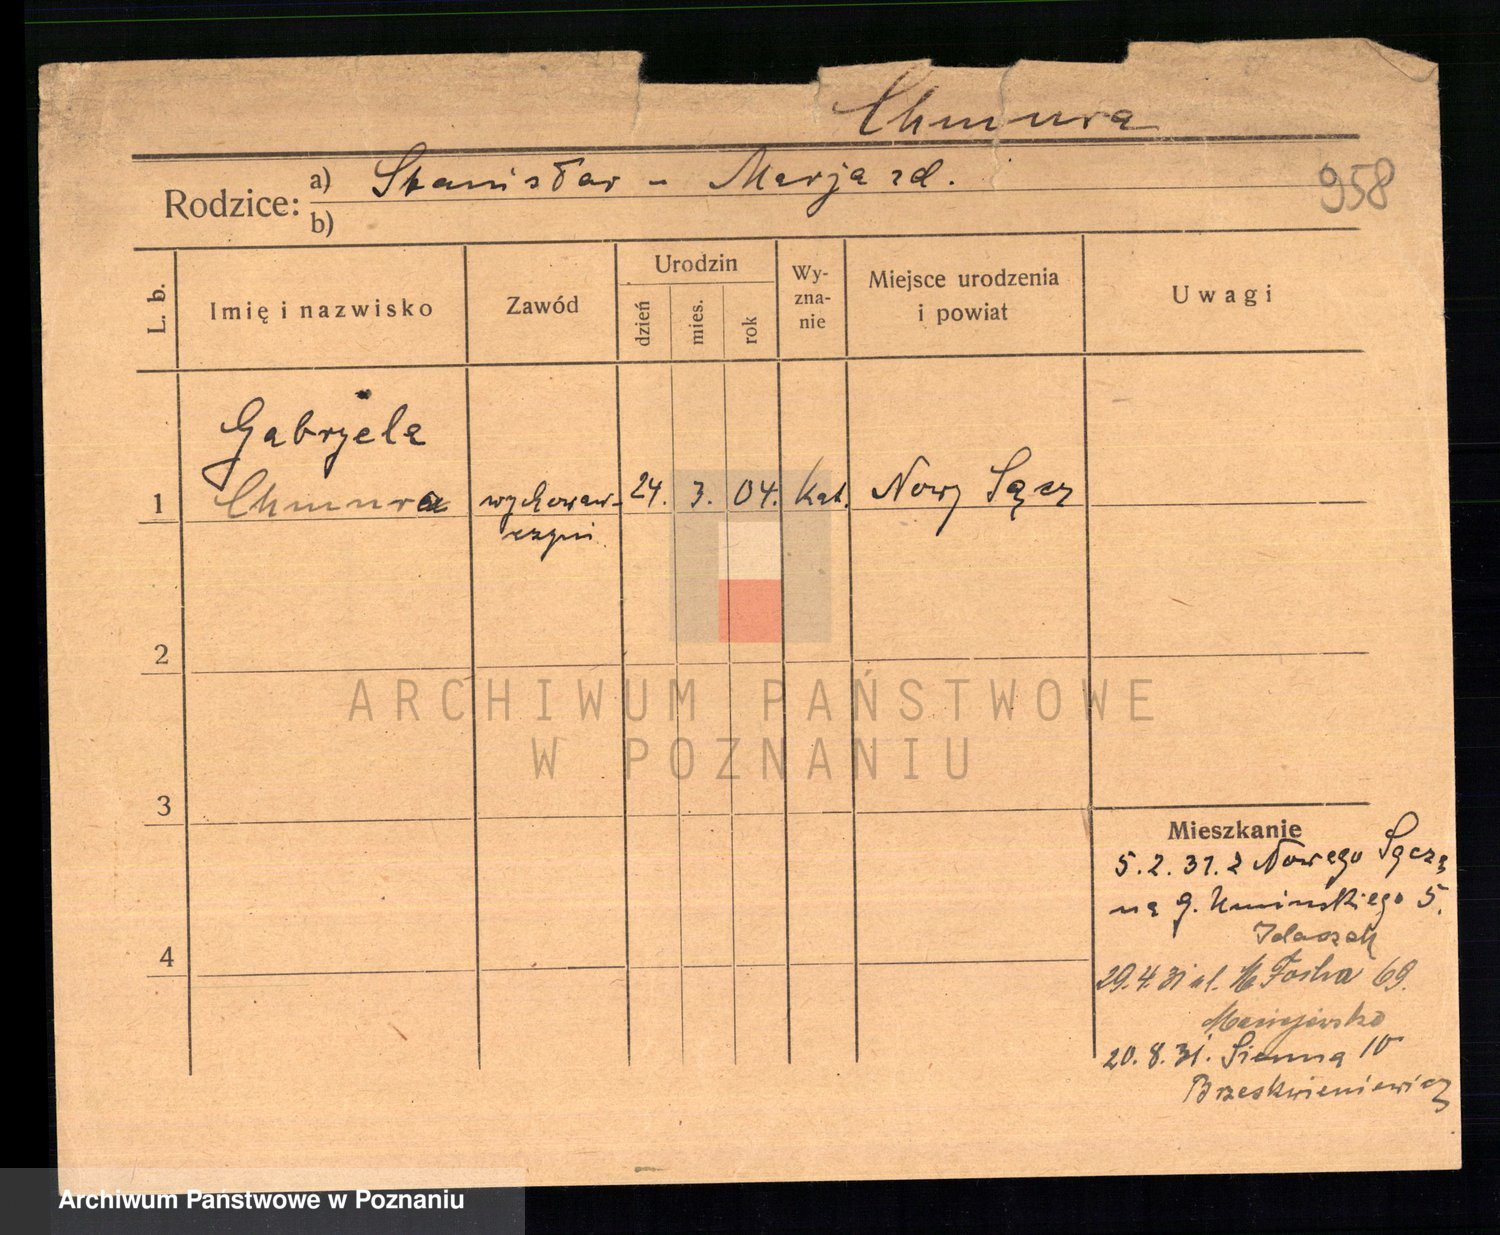 Chmura
958
Rodzice: a) Stanisław - Marja zd.
b)
L. b.
Imię i nazwisko
Zawód
Urodzin
dzień
mies.
rok
Wy-
zna-
nie
Miejsce urodzenia
i powiat
Uwagi
Gabryela
1 Chmura wychowaw- 24. 3. 04. Kat. Nowy Sącz
czyni
2
ARCHIWUM PAŃSTWOWE
W POZNANIU
3
Mieszkanie
5.2.31. z Nowego Sącza
na g. Umińskiego 5.
4
29.4.31 ul. M Focha 69.
20.8.31. Sienna 10
Brzeskwieniewicz
Archiwum Państwowe w Poznaniu